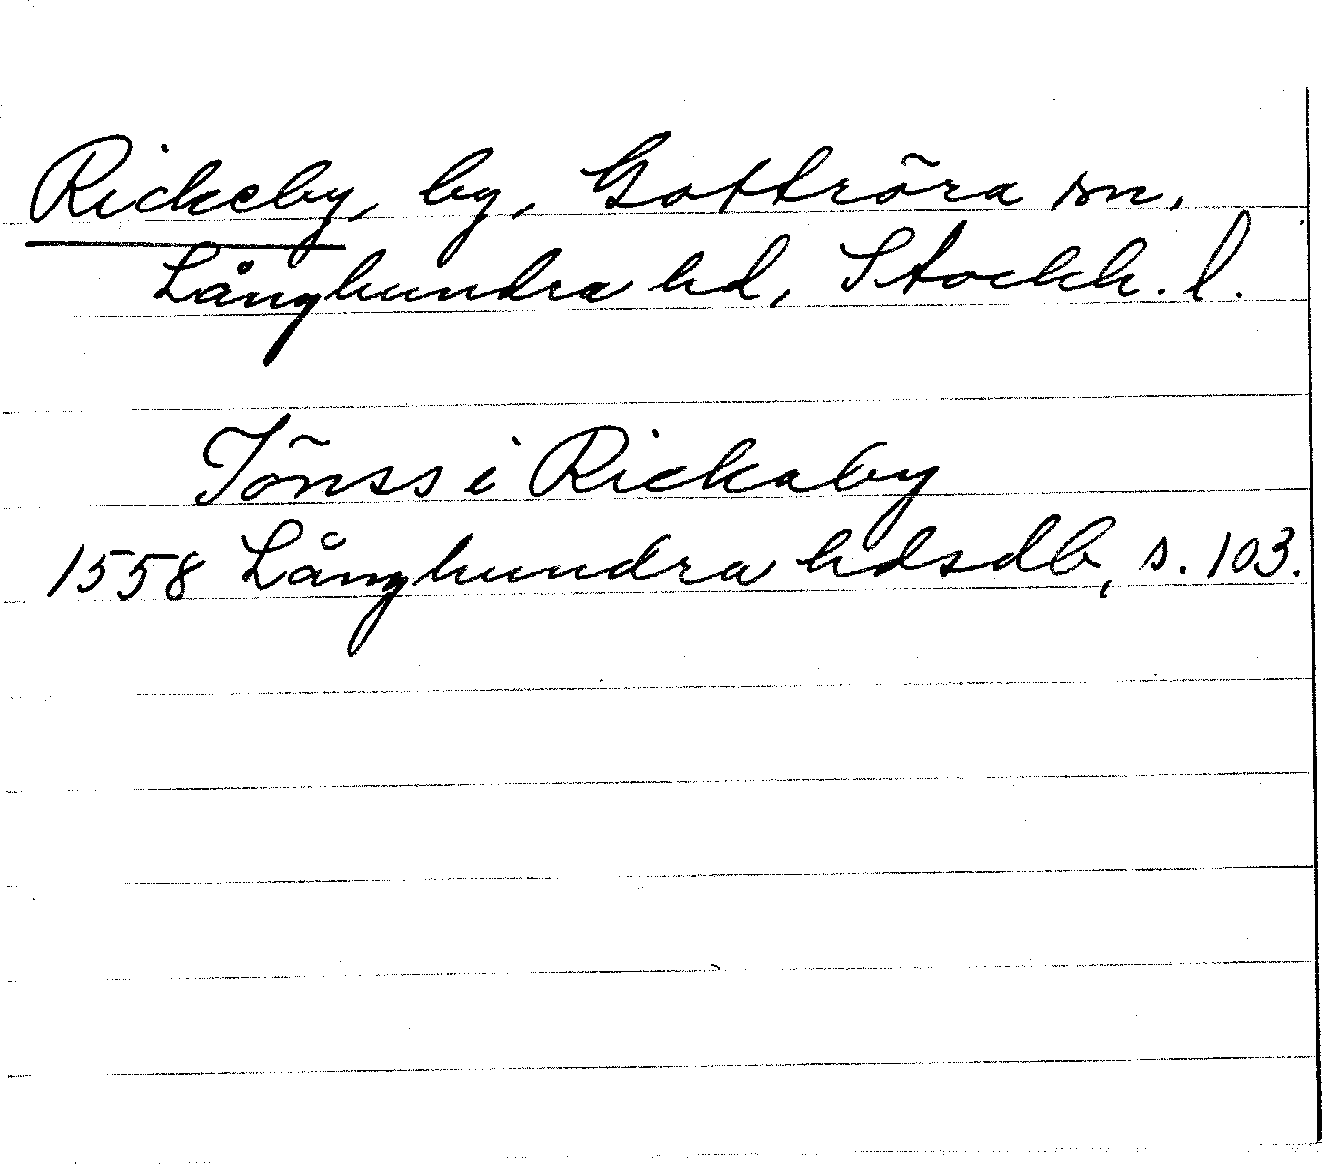 Rickeby, by, Gottröra sn,
Långhundra hd, Stockh. l.
Jönss i Rickaby
1558 Långhundra hdsdb, s. 103.